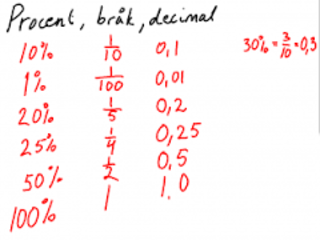 Procent, bråk, decimal
10% 1/10 0,1 30% = 3/10 = 0,3
1% 1/100 0,01
20% 1/5 0,2
25% 1/4 0,25
50% 1/2 0,5
100% 1 1.0